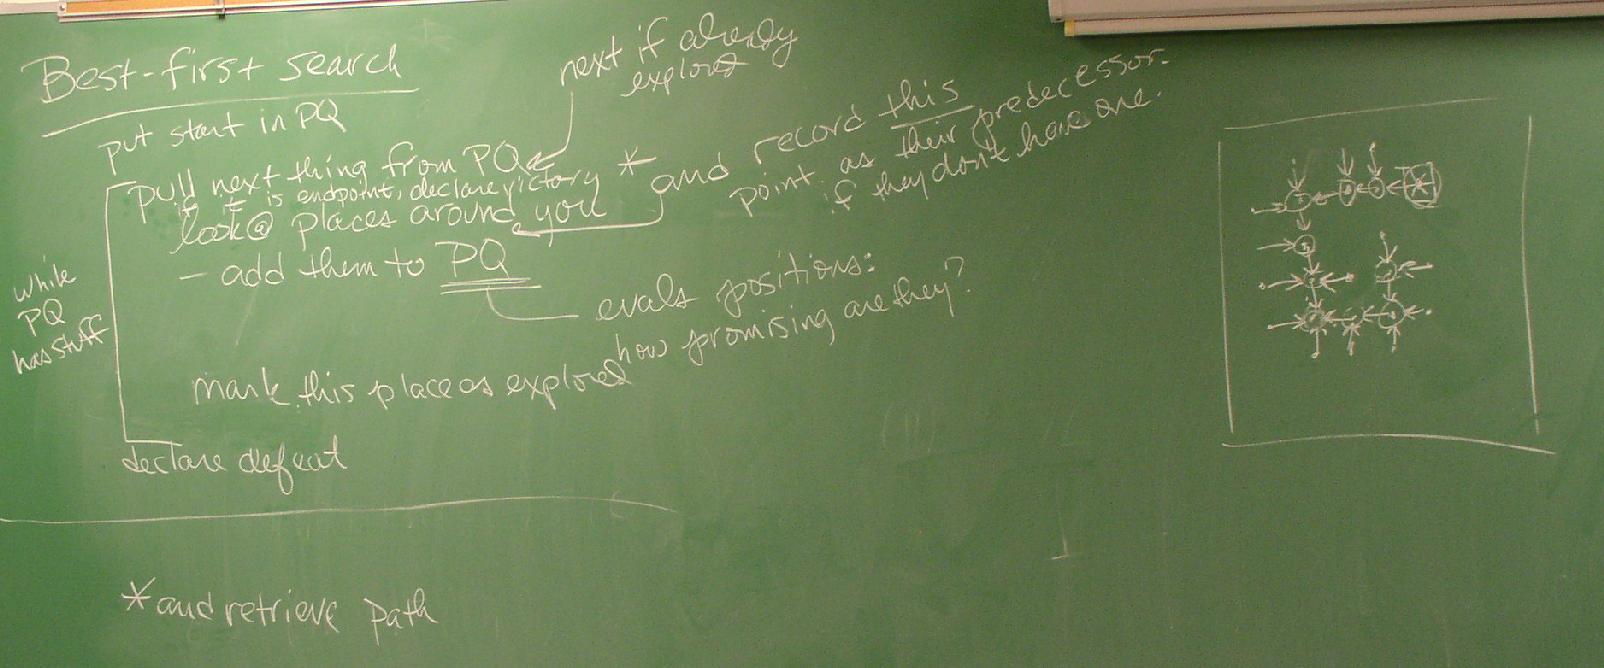 Best-first search
put start in PQ
next if already
explored
pull next thing from PQ
if it is endpoint, declare victory *
look @ places around you
and record this
point as their predecessor.
if they don't have one.
- add them to PQ
evals positions:
how promising are they?
while
PQ
has stuff
mark this place as explored
declare defeat
* and retrieve path